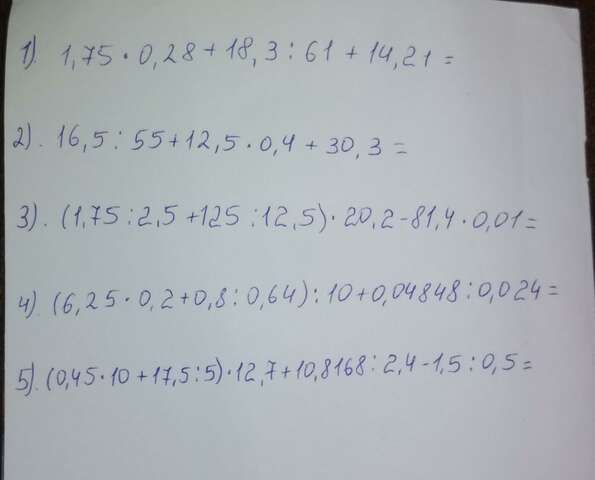 1). 1,75 · 0,28 + 18,3 : 61 + 14,21 =
2). 16,5 : 55 + 12,5 · 0,4 + 30,3 =
3). (1,75 : 2,5 + 125 : 12,5) · 20,2 - 81,4 · 0,01 =
4). (6,25 · 0,2 + 0,8 : 0,64) : 10 + 0,04848 : 0,024 =
5). (0,45 · 10 + 17,5 : 5) · 12,7 + 10,8168 : 2,4 - 1,5 : 0,5 =